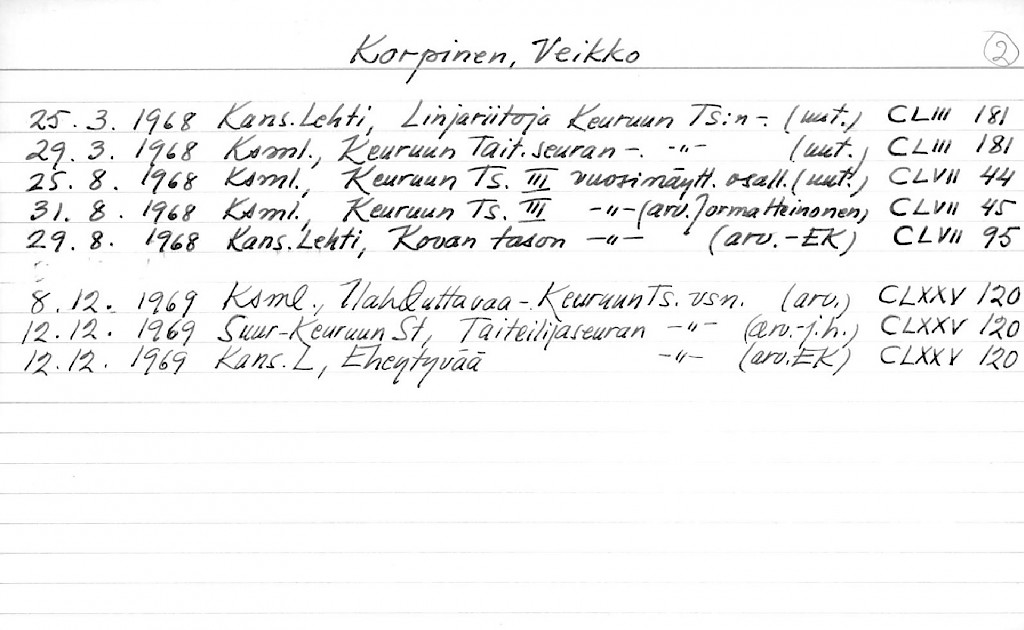 Korpinen, Veikko 2
25. 3. 1968 Kans. Lehti, Linjariitoja Keuruun Ts:n -. (uut.) CLIII 181
29. 3. 1968 Ksml., Keuruun Tait. seuran -. -"- (uut.) CLIII 181
25. 8. 1968 Ksml., Keuruun Ts. III vuosinäytt. osall. (uut.) CLVII 44
31. 8. 1968 Ksml., Keuruun Ts. III -"- (arv. Jorma Heinonen) CLVII 45
29. 8. 1968 Kans. Lehti, Kovan tason -"- (arv. - EK) CLVII 95
8. 12. 1969 Ksml., Ilahduttavaa - Keuruun Ts. vsn. (arv.) CLXXV 120
12. 12. 1969 Suur-Keuruun St, Taiteilijaseuran -"- (arv. - j.h.) CLXXV 120
12. 12. 1969 Kans. L, Eheytyvää -"- (arv. EK) CLXXV 120